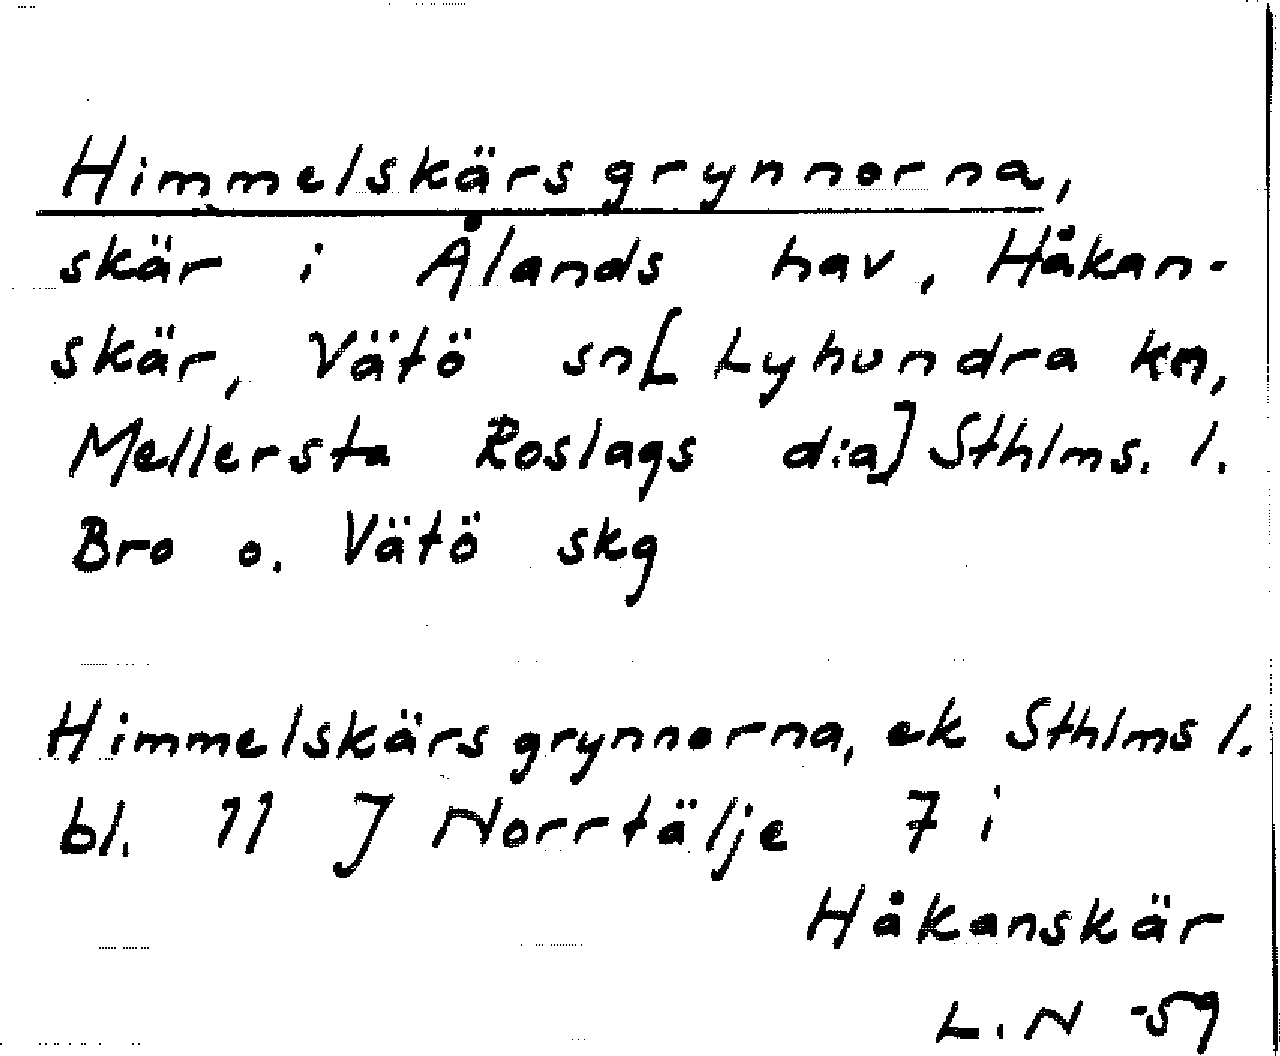 Himmelskärsgrynnorna,
skär i Ålands hav, Håkan-
skär, Vätö sn[Lyhundra kn,
Mellersta Roslags d:a] Sthlms. l.
Bro o. Vätö skg
Himmelskärsgrynnorna, ek Sthlms l.
bl. 11 J Norrtälje 7 i
Håkanskär
L.N -59